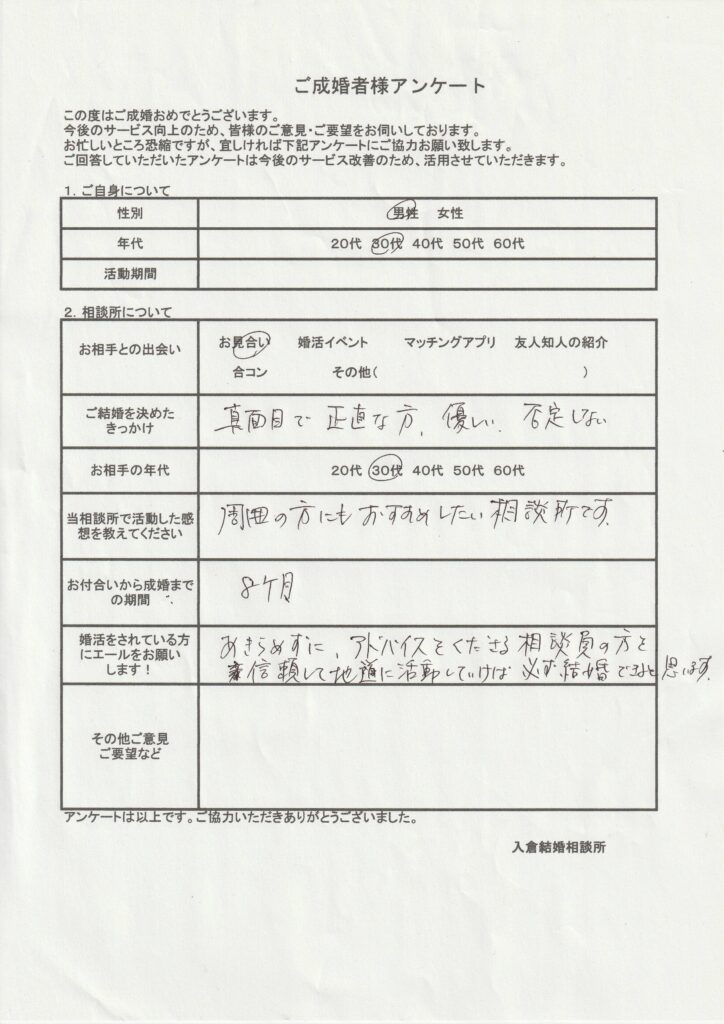 ご成婚者様アンケート
この度はご成婚おめでとうございます。
今後のサービス向上のため、皆様のご意見・ご要望をお伺いしております。
お忙しいところ恐縮ですが、宜しければ下記アンケートにご協力お願い致します。
ご回答していただいたアンケートは今後のサービス改善のため、活用させていただきます。
1. ご自身について
性別 男性 女性
年代 20代 30代 40代 50代 60代
活動期間
2. 相談所について
お相手との出会い お見合い 婚活イベント マッチングアプリ 友人知人の紹介
合コン その他( )
ご結婚を決めた
きっかけ
真面目で正直な方、優しい、否定しない
お相手の年代 20代 30代 40代 50代 60代
当相談所で活動した感
想を教えてください
周囲の方にもおすすめしたい相談所です。
お付合いから成婚まで
の期間
8ケ月
婚活をされている方
にエールをお願い
します!
あきらめずに、アドバイスをくださる相談員の方を
信頼して地道に活動していけば必ず結婚できると思います。
その他ご意見
ご要望など
アンケートは以上です。ご協力いただきありがとうございました。
入倉結婚相談所